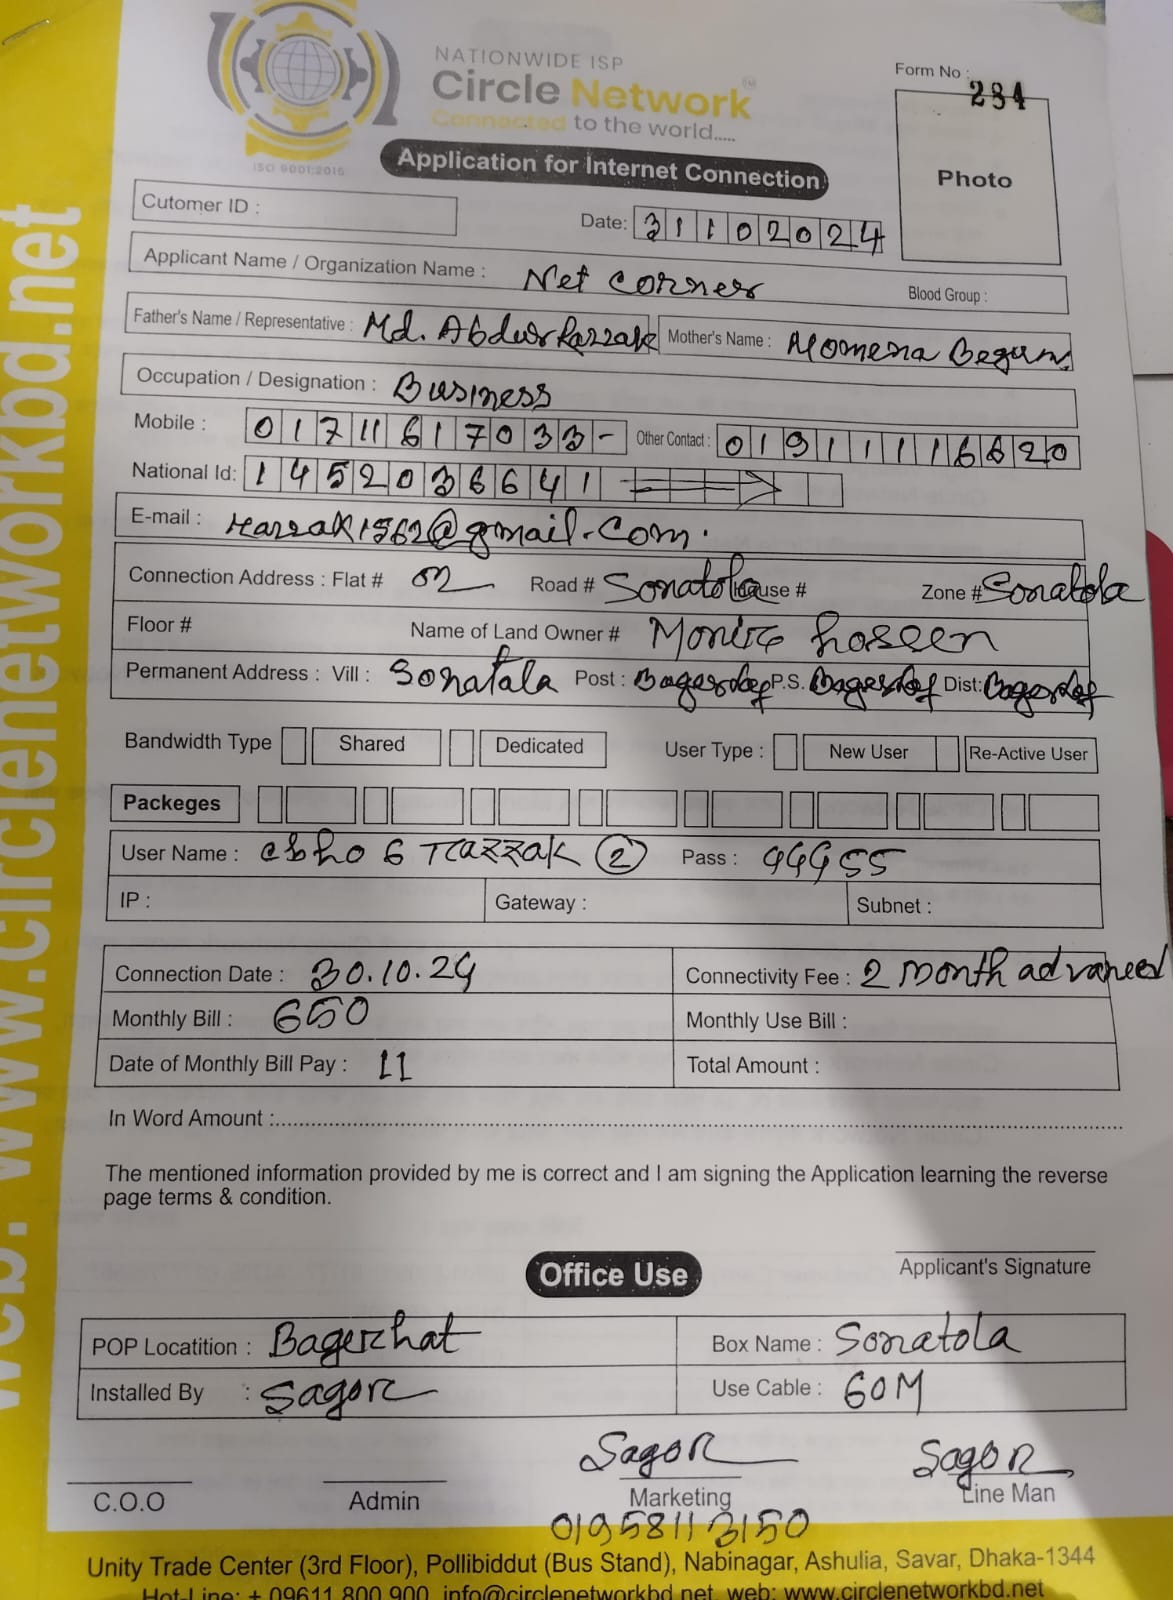 NATIONWIDE ISP
Circle Network
Connected to the world.....
ISO 9001:2015
Form No : 284
Photo
Application for Internet Connection
Cutomer ID :
Date: 31102024
Applicant Name / Organization Name : Net Corner
Blood Group :
Father's Name / Representative : Md. Abdur Razzak Mother's Name : Momena Begum
Occupation / Designation : Business
Mobile : 01711617033- Other Contact : 01911116620
National Id: 1452036641
E-mail : razzak1962@gmail.com.
Connection Address : Flat # 02 Road # Sonatola House # Zone # Sonatola
Floor # Name of Land Owner # Monir hoseen
Permanent Address : Vill : Sonatala Post : P.S. Dist:
Bandwidth Type Shared Dedicated User Type : New User Re-Active User
Packeges
User Name : 6 razzak 2 Pass : 44455
IP : Gateway : Subnet :
Connection Date : 30.10.24 Connectivity Fee : 2 month advanced
Monthly Bill : 650 Monthly Use Bill :
Date of Monthly Bill Pay : 11 Total Amount :
In Word Amount :
The mentioned information provided by me is correct and I am signing the Application learning the reverse
page terms & condition.
Applicant's Signature
Office Use
POP Locatition : Bagerhat Box Name : Sonatola
Installed By : Sagor Use Cable : 60M
Sagor Sagor
C.O.O Admin Marketing Line Man
01958113150
Unity Trade Center (3rd Floor), Pollibiddut (Bus Stand), Nabinagar, Ashulia, Savar, Dhaka-1344
Hot-Line: + 09611 800 900, info@circlenetworkbd.net, web: www.circlenetworkbd.net
web: www.circlenetworkbd.net